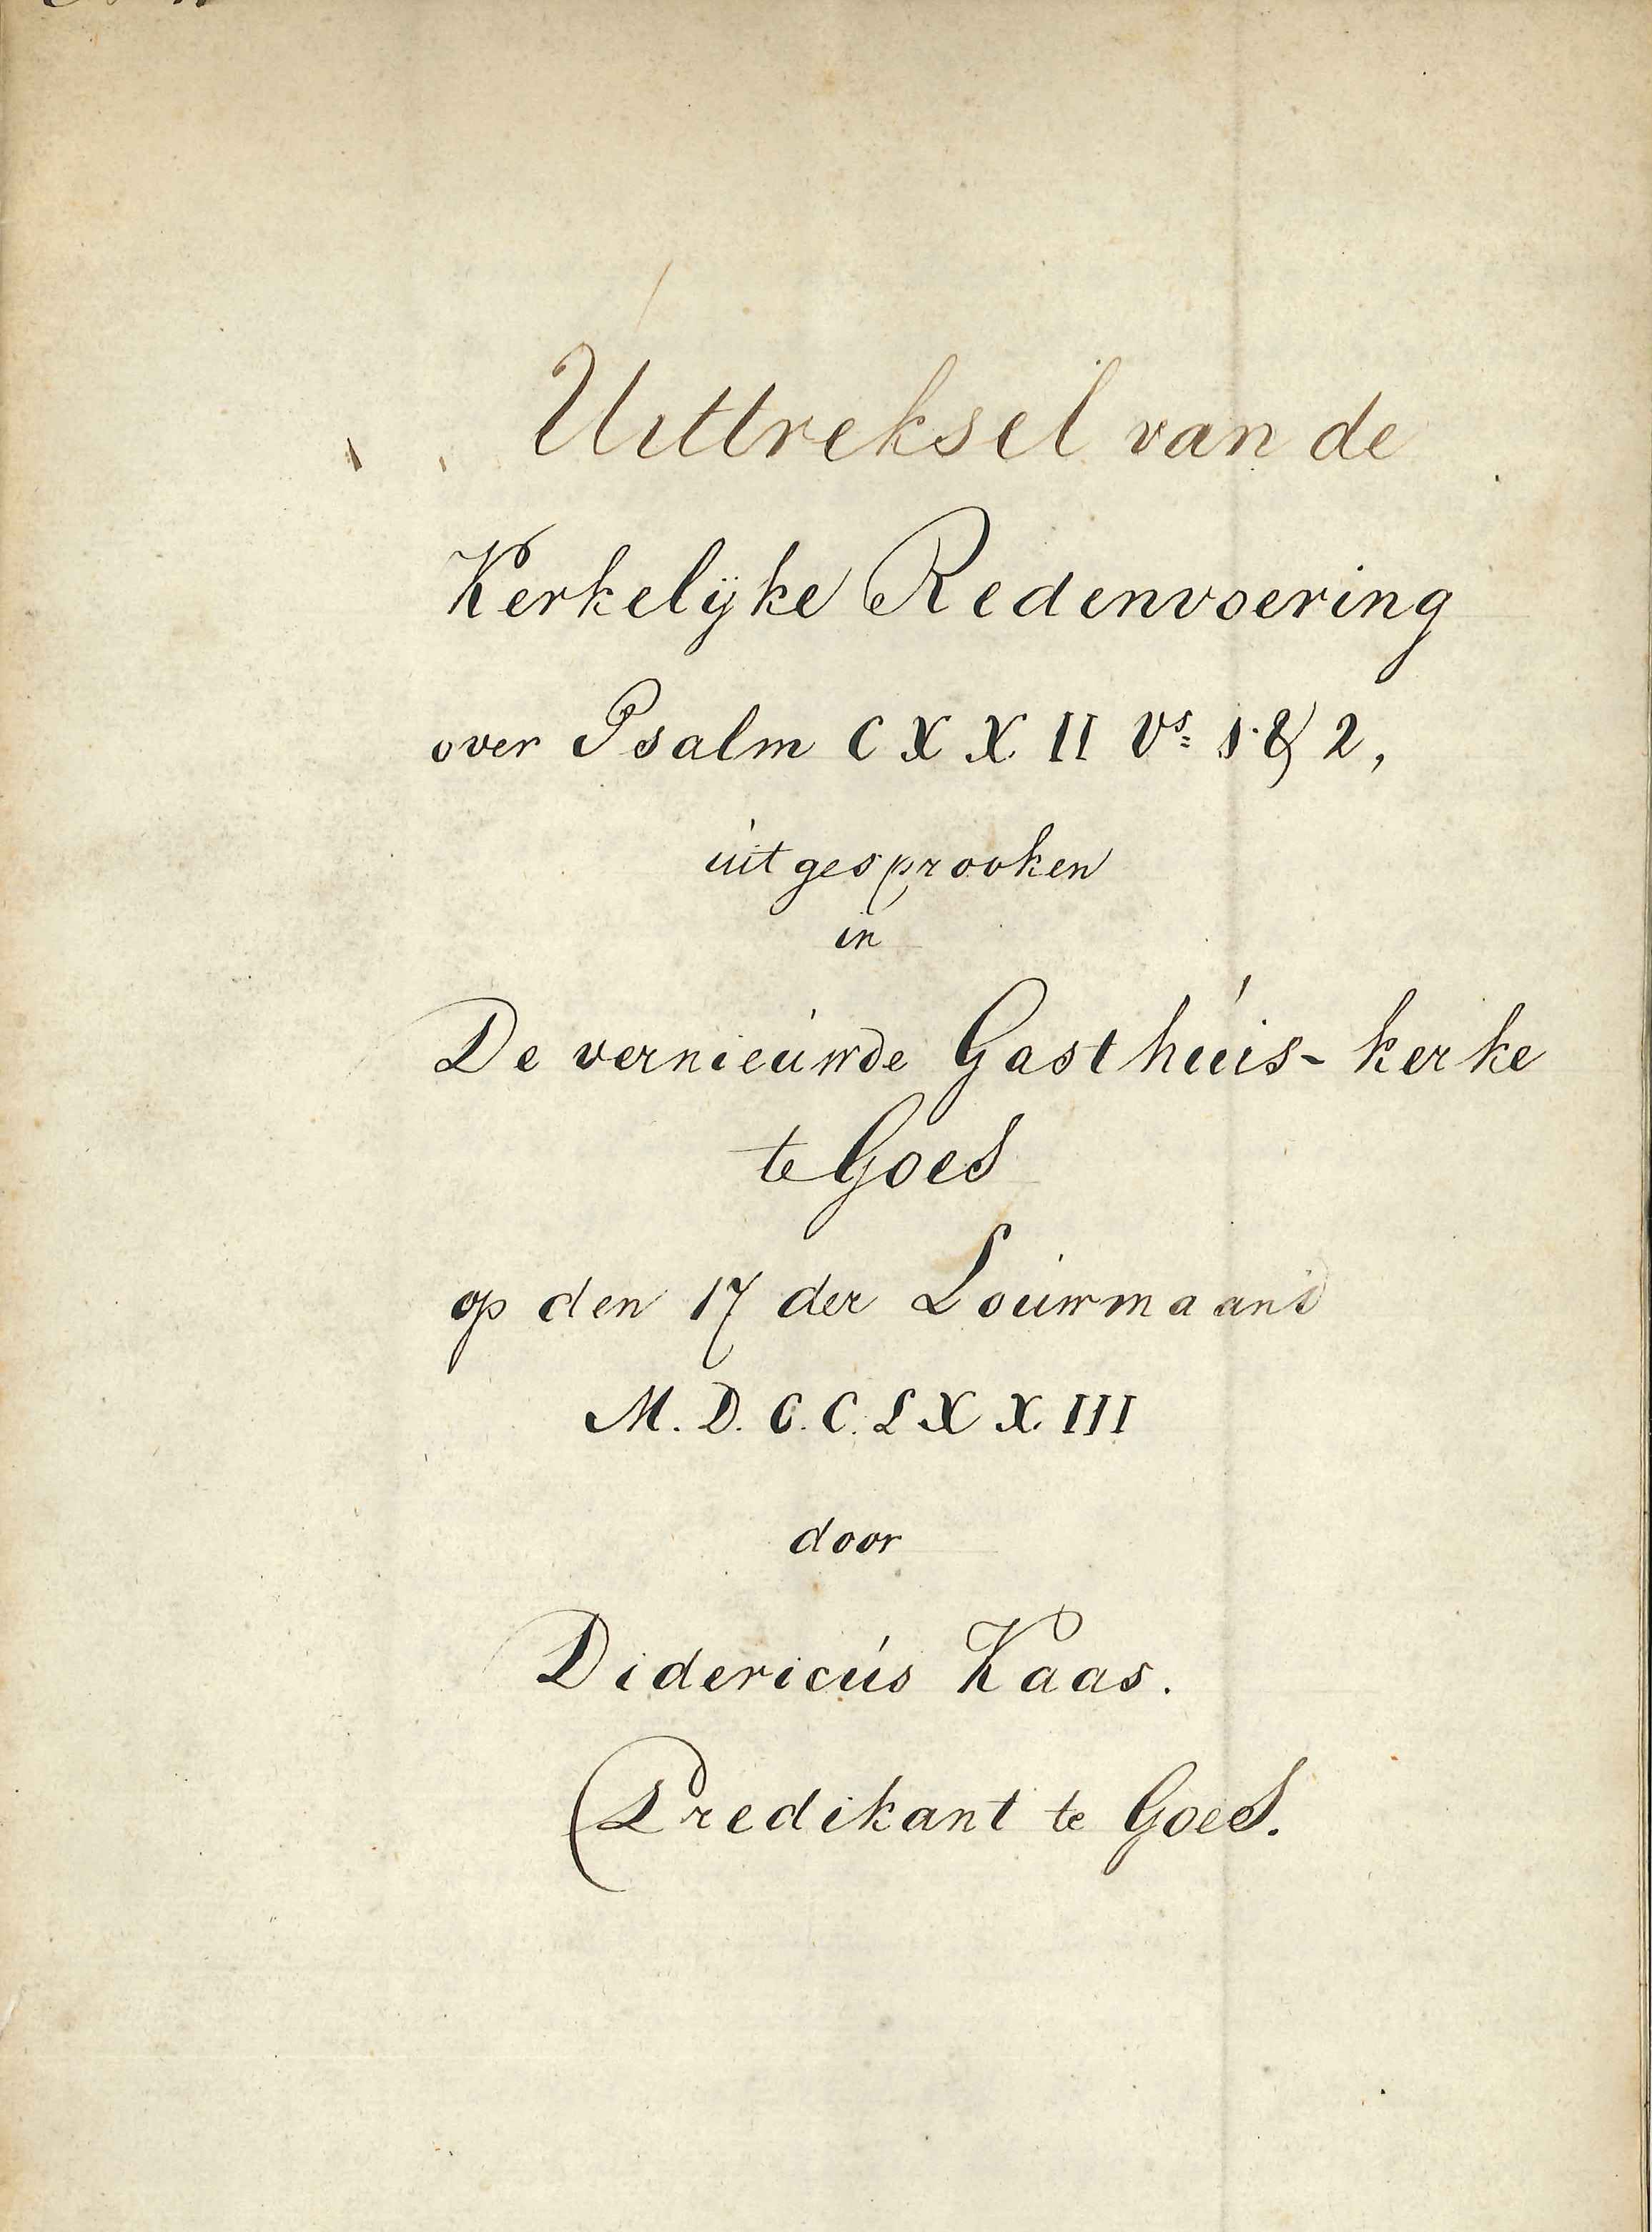 Uittreksel van de
Kerkelijke Redenvoering
over Psalm CXXII Vs. 1 & 2,
uitgesprooken
in
De vernieuwde Gasthuis-kerke
te Goes
op den 17 der Louwmaand
M.D.C.C.LXXIII
door
Didericus Kaas.
Predikant te Goes.